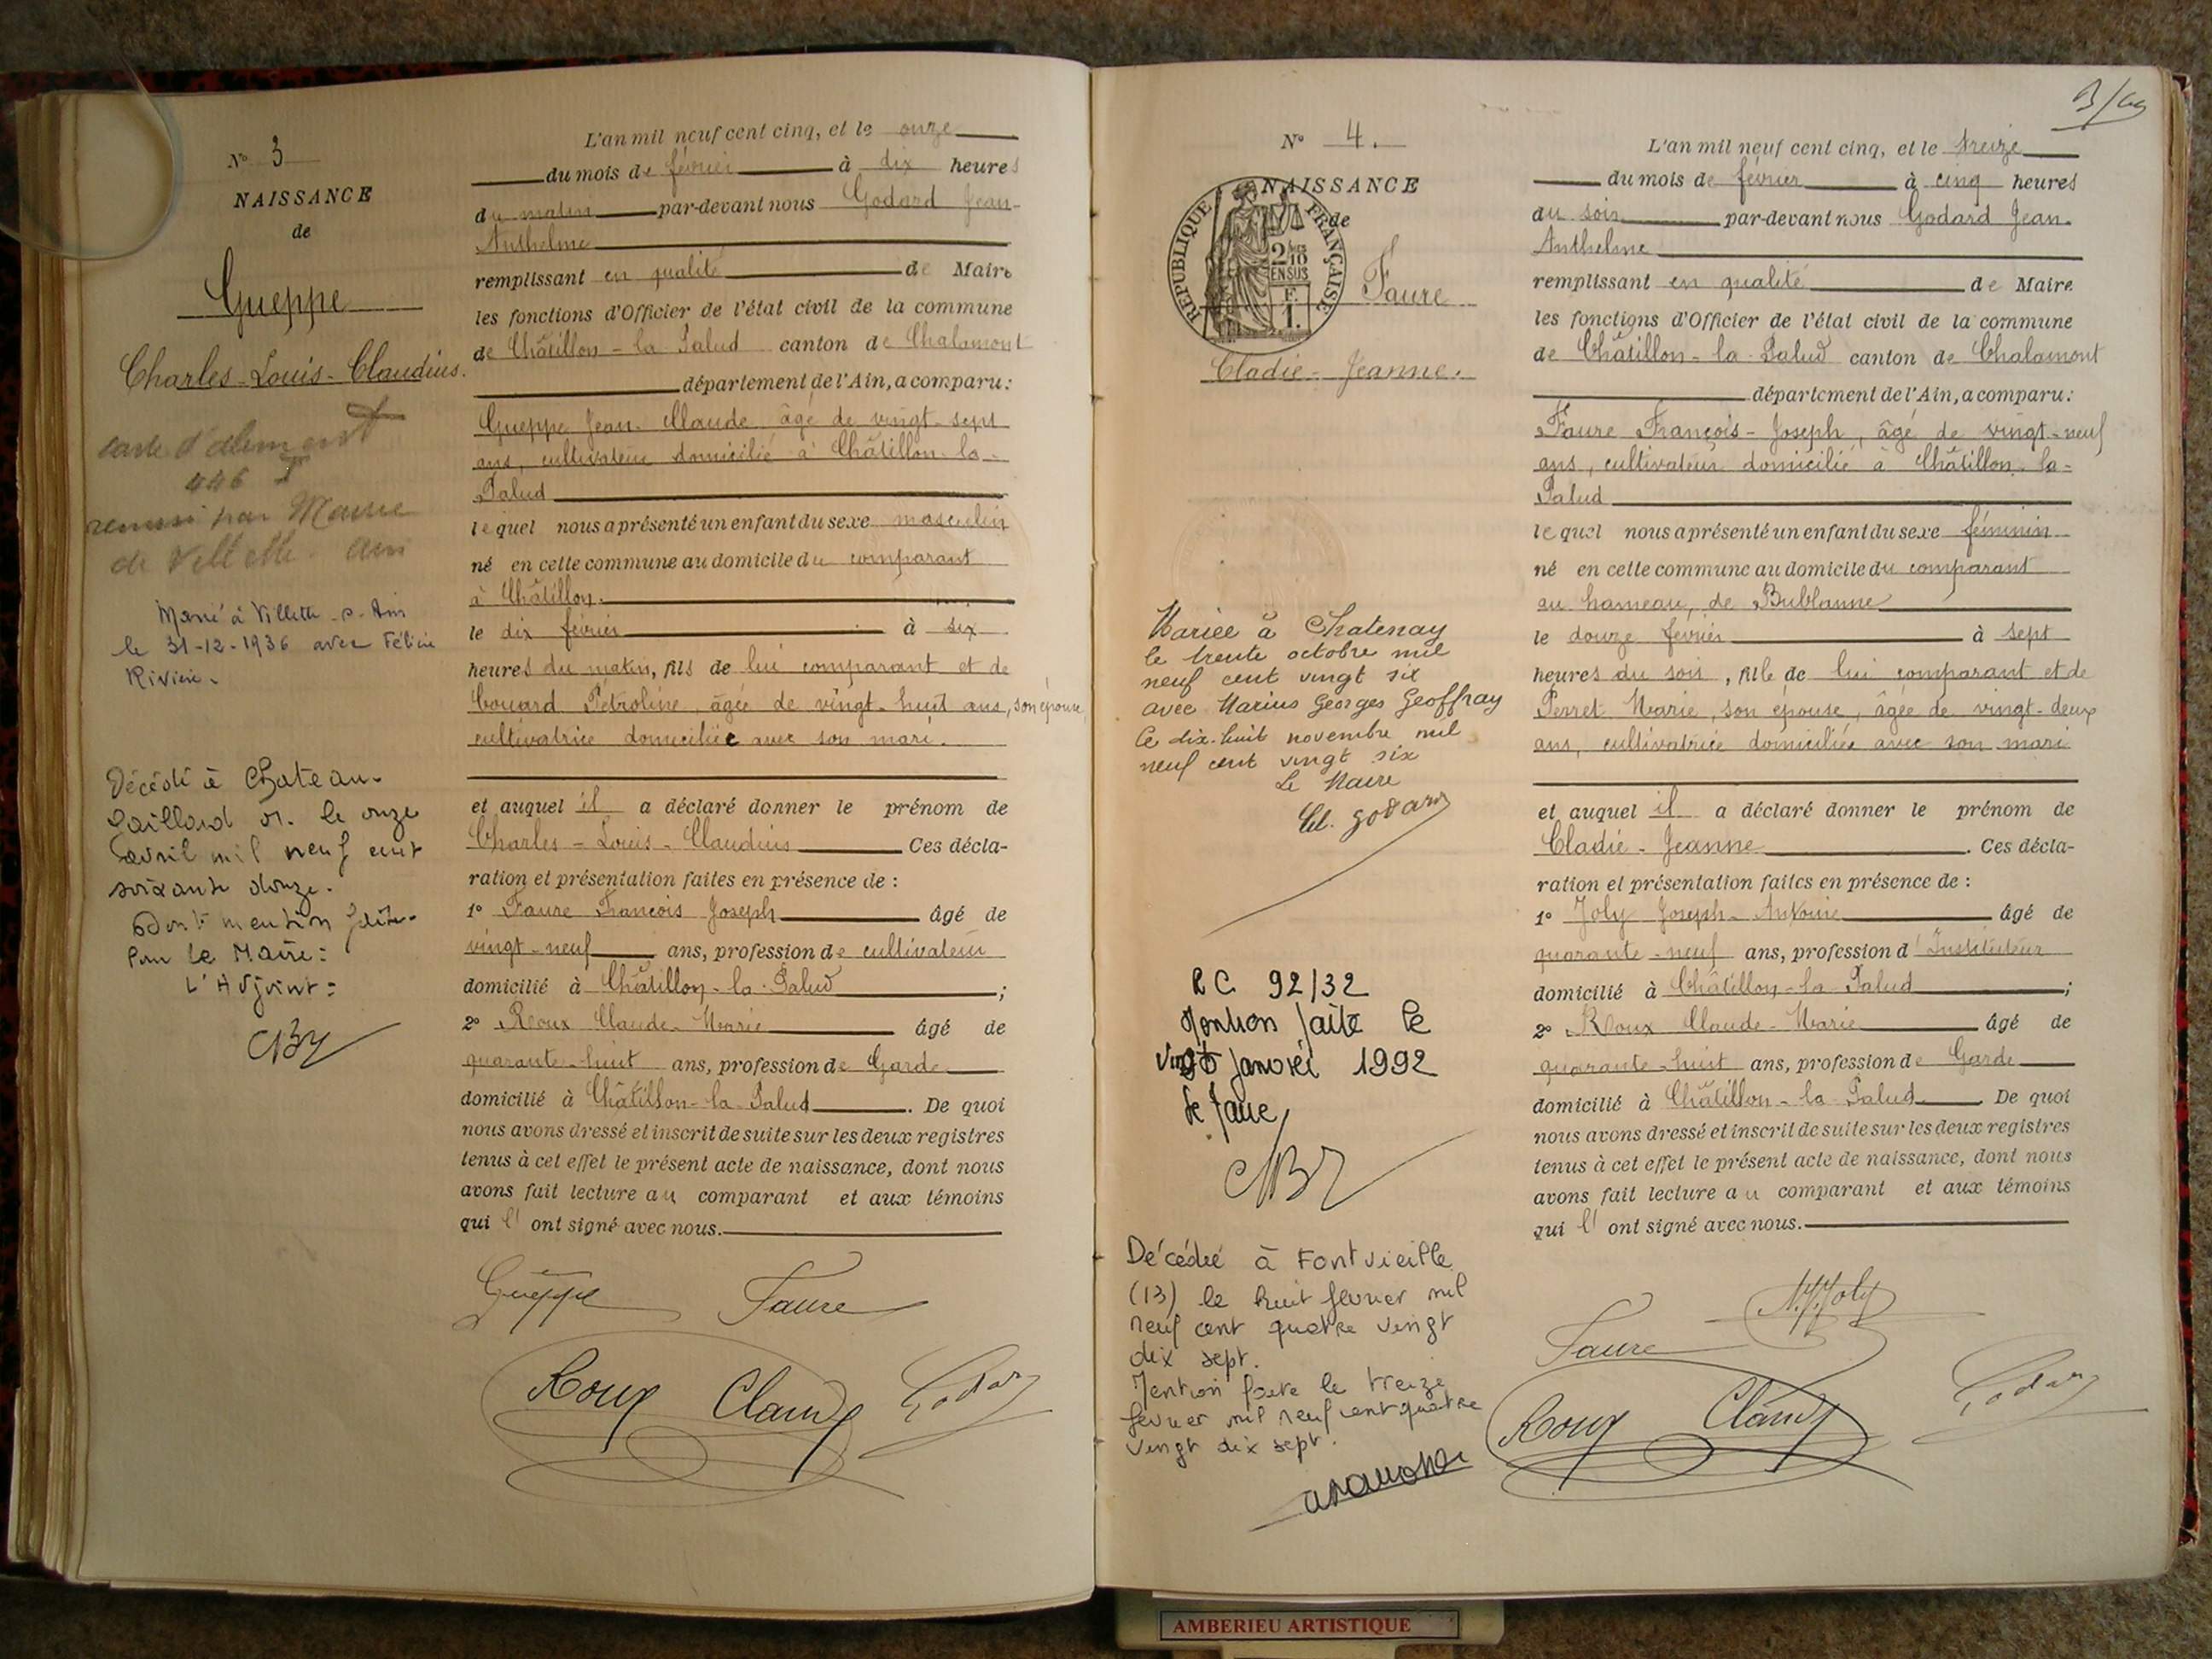 N° 3
NAISSANCE
de
Gueppe
Charles-Louis-Claudius.
carte d'aliment
446
remise par Mairie
de Villette Ain
Marié à Villette-s-Ain
le 31-12-1936 avec Félicie
Rivière.
Décédé à Chateau-
Gaillard 01. le onze
avril mil neuf cent
soixante douze.
Dont mention faite.
Pour le Maire:
L'Adjoint:
L'an mil neuf cent cinq, et le onze
du mois de février à dix heures
du matin par-devant nous Godard Jean-
Anthelme
remplissant en qualité de Maire
les fonctions d'Officier de l'état civil de la commune
de Châtillon-la-Palud canton de Chalamont
département de l'Ain, a comparu:
Gueppe Jean-Claude âgé de vingt-sept
ans, cultivateur domicilié à Châtillon-la-
Palud
lequel nous a présenté un enfant du sexe masculin
né en cette commune au domicile du comparant
à Châtillon.
le dix février à six
heures du matin, fils de lui comparant et de
Couard Pétroline, âgée de vingt-huit ans, son épouse,
cultivatrice domiciliée avec son mari.
et auquel il a déclaré donner le prénom de
Charles-Louis-Claudius Ces décla-
ration et présentation faites en présence de :
1° Faure François Joseph âgé de
vingt-neuf ans, profession de cultivateur
domicilié à Châtillon-la-Palud ;
2° Roux Claude-Marie âgé de
quarante-huit ans, profession de Garde
domicilié à Châtillon-la-Palud. De quoi
nous avons dressé et inscrit de suite sur les deux registres
tenus à cet effet le présent acte de naissance, dont nous
avons fait lecture au comparant et aux témoins
qui l' ont signé avec nous.
Gueppe Faure
Roux Claude Godard
3/
N° 4.
NAISSANCE
de
RÉPUBLIQUE FRANÇAISE
2/10
EN SUS
F.
1.
Faure
Cladie-Jeanne.
Mariée à Chatenay
le trente octobre mil
neuf cent vingt six
avec Marius Georges Geoffray
Le dix-huit novembre mil
neuf cent vingt six
Le Maire
Cl. Godard
RC 92/32
Mention faite le
vingt janvier 1992
Le Maire,
Décédée à Fontvieille
(13) le huit février mil
neuf cent quatre vingt
dix sept.
Mention faite le treize
février mil neuf cent quatre
vingt dix sept.
L'an mil neuf cent cinq, et le treize
du mois de février à cinq heures
du soir par-devant nous Godard Jean-
Anthelme
remplissant en qualité de Maire
les fonctions d'Officier de l'état civil de la commune
de Châtillon-la-Palud canton de Chalamont
département de l'Ain, a comparu:
Faure François-Joseph, âgé de vingt-neuf
ans, cultivateur domicilié à Châtillon-la-
Palud
lequel nous a présenté un enfant du sexe féminin
né en cette commune au domicile du comparant
au hameau, de Bublanne
le douze février à sept
heures du soir, fille de lui comparant et de
Perret Marie, son épouse, âgée de vingt-deux
ans, cultivatrice domiciliée avec son mari
et auquel il a déclaré donner le prénom de
Cladie-Jeanne. Ces décla-
ration et présentation faites en présence de :
1° Joly Joseph-Antoine âgé de
quarante-neuf ans, profession d'Instituteur
domicilié à Châtillon-la-Palud ;
2° Roux Claude-Marie âgé de
quarante-huit ans, profession de Garde
domicilié à Châtillon-la-Palud De quoi
nous avons dressé et inscrit de suite sur les deux registres
tenus à cet effet le présent acte de naissance, dont nous
avons fait lecture au comparant et aux témoins
qui l' ont signé avec nous.
Faure Joly
Roux Claude Godard
AMBERIEU ARTISTIQUE